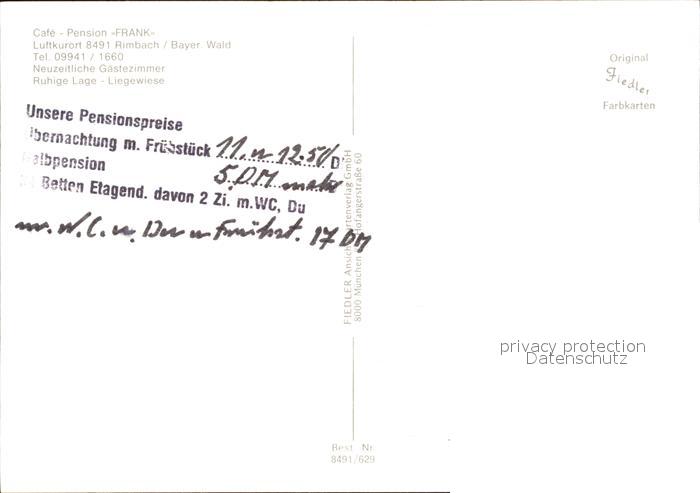 Café - Pension »FRANK«
Luftkurort 8491 Rimbach / Bayer. Wald
Tel. 09941 / 1660
Neuzeitliche Gästezimmer
Ruhige Lage - Liegewiese
Unsere Pensionspreise
Übernachtung m. Frühstück 11.u 12.50 D
Halbpension 5.DM mehr
Betten Etagend. davon 2 Zi. m.WC, Du
m. W.C. u. Du u Frühst. 17 DM
FIEDLER Ansichtskartenverlag GmbH
8000 München Hofangerstraße 60
Best. Nr.
8491/629
Original
Fiedler
Farbkarten
privacy protection
Datenschutz